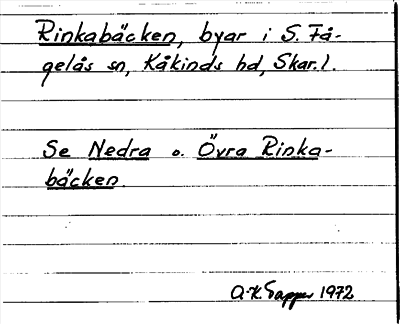 Rinkabäcken, byar i S. Få-
gelås sn, Kåkinds hd, Skar. l.
Se Nedra o. Övra Rinka-
bäcken.
A.-K. 1972